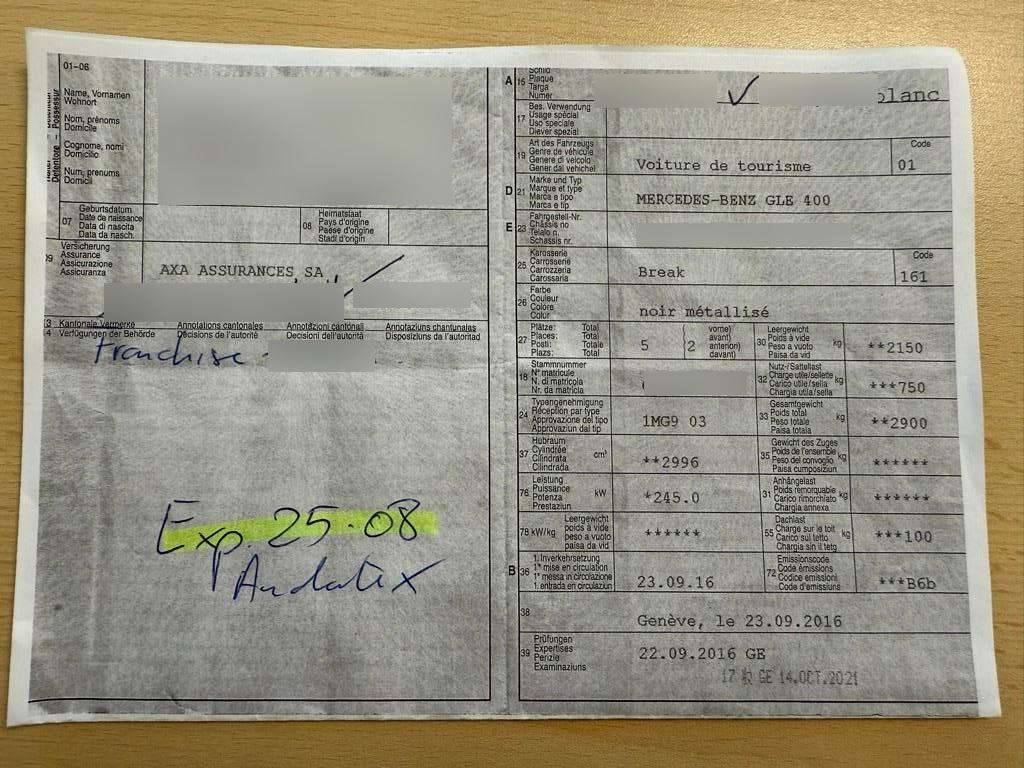 01-06
Name, Vornamen
Wohnort
Nom, prénoms
Domicile
Cognome, nomi
Domicilio
Num, prenums
Domicil
Detentore – Possessur
07 Geburtsdatum
Date de naissance
Data di nascita
Data da nasch.
08 Heimatstaat
Pays d'origine
Paese d'origine
Stadi d'origin
09 Versicherung
Assurance
Assicurazione
Assicuranza
AXA ASSURANCES SA
3 Kantonale Vermerke Annotations cantonales Annotazioni cantonali Annotaziuns chantunalas
4 Verfügungen der Behörde Décisions de l'autorité Decisioni dell'autorità Disposiziuns da l'autoritad
Franchise
Exp. 25-08
Audatex
A 15 Schild
Plaque
Targa
Numer
blanc
17 Bes. Verwendung
Usage spécial
Uso speciale
Diever spezial
19 Art des Fahrzeugs
Genre de véhicule
Genere di veicolo
Gener dal vehichel
Voiture de tourisme
Code
01
D 21 Marke und Typ
Marque et type
Marca e tipo
Marca e tip
MERCEDES-BENZ GLE 400
E 23 Fahrgestell-Nr.
Châssis no
Telaio n.
Schassis nr.
25 Karosserie
Carrosserie
Carrozzeria
Carossaria
Break
Code
161
26 Farbe
Couleur
Colore
Colur
noir métallisé
27 Plätze: Total
Places: Total
Posti: Totale
Plazs: Total
5
vorne)
avant)
anteriori)
davant)
2
30 Leergewicht
Poids à vide
Peso a vuoto
Paisa da vid
kg
**2150
18 Stammnummer
N° matricule
N. di matricola
Nr. da matricla
32 Nutz-/Sattellast
Charge utile/sellette
Carico utile/sella
Chargia utila/sella
kg
***750
24 Typengenehmigung
Réception par type
Approvazione del tipo
Approvaziun dal tip
1MG9 03
33 Gesamtgewicht
Poids total
Peso totale
Paisa totala
kg
**2900
37 Hubraum
Cylindrée
Cilindrata
Cilindrada
cm³
**2996
35 Gewicht des Zuges
Poids de l'ensemble
Peso del convoglio
Paisa cumposiziun
kg
******
76 Leistung
Puissance
Potenza
Prestaziun
kW
*245.0
31 Anhängelast
Poids remorquable
Carico rimorchiato
Chargia annexa
kg
******
78 kW/kg Leergewicht
poids à vide
peso a vuoto
paisa da vid
******
55 Dachlast
Charge sur le toit
Carico sul tetto
Chargia sin il tetg
kg
***100
B 36 1. Inverkehrsetzung
1re mise en circulation
1a messa in circolazione
1. entrada en circulaziun
23.09.16
72 Emissionscode
Code émissions
Codice emissioni
Code d'emissiuns
***B6b
38
Genève, le 23.09.2016
39 Prüfungen
Expertises
Perizie
Examinaziuns
22.09.2016 GE
GE 14.OCT.2021